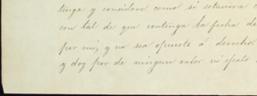 tenga y considere como si estuviera
con tal de que contenga la fecha de
por mi, y no sea opuesto á derecho
y doy por de ningun valor ni efecto